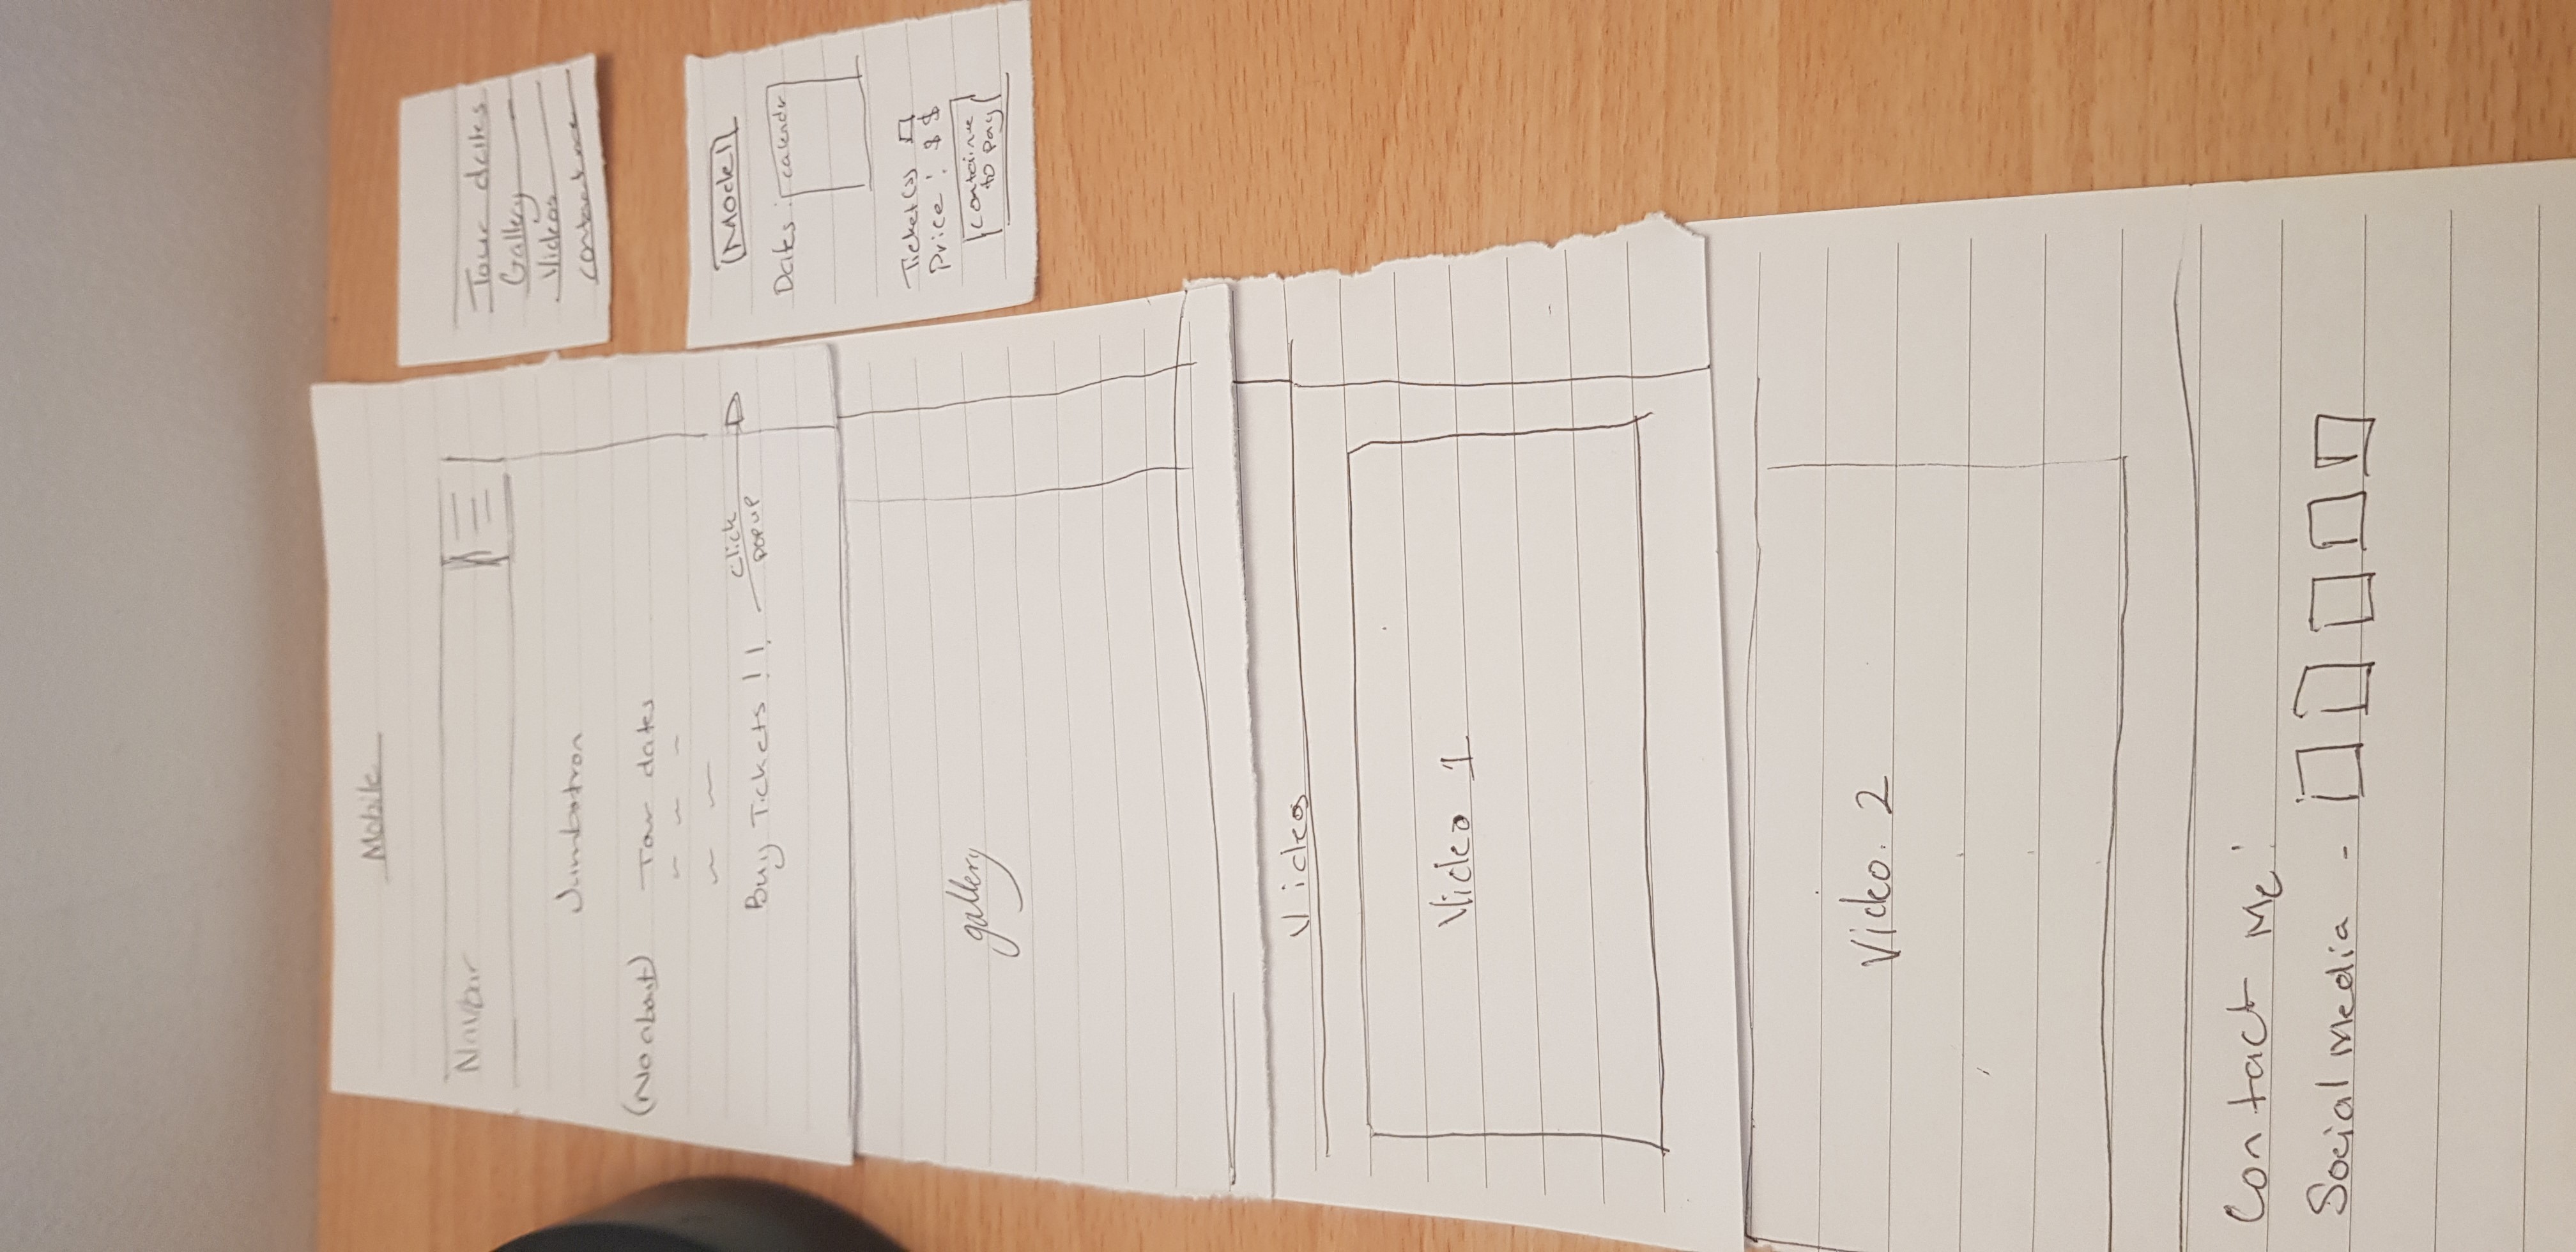 Mobile
Navbar
Jumbotron
(No about) Tour dates
Buy Tickets!! click
popup
gallery
Videos
Video 1
Video. 2
Contact Me:
Social Media -
Tour dates
Gallery
Videos
contact me
Model
Dates: calender
Ticket(s)
Price: $$
continue
to pay